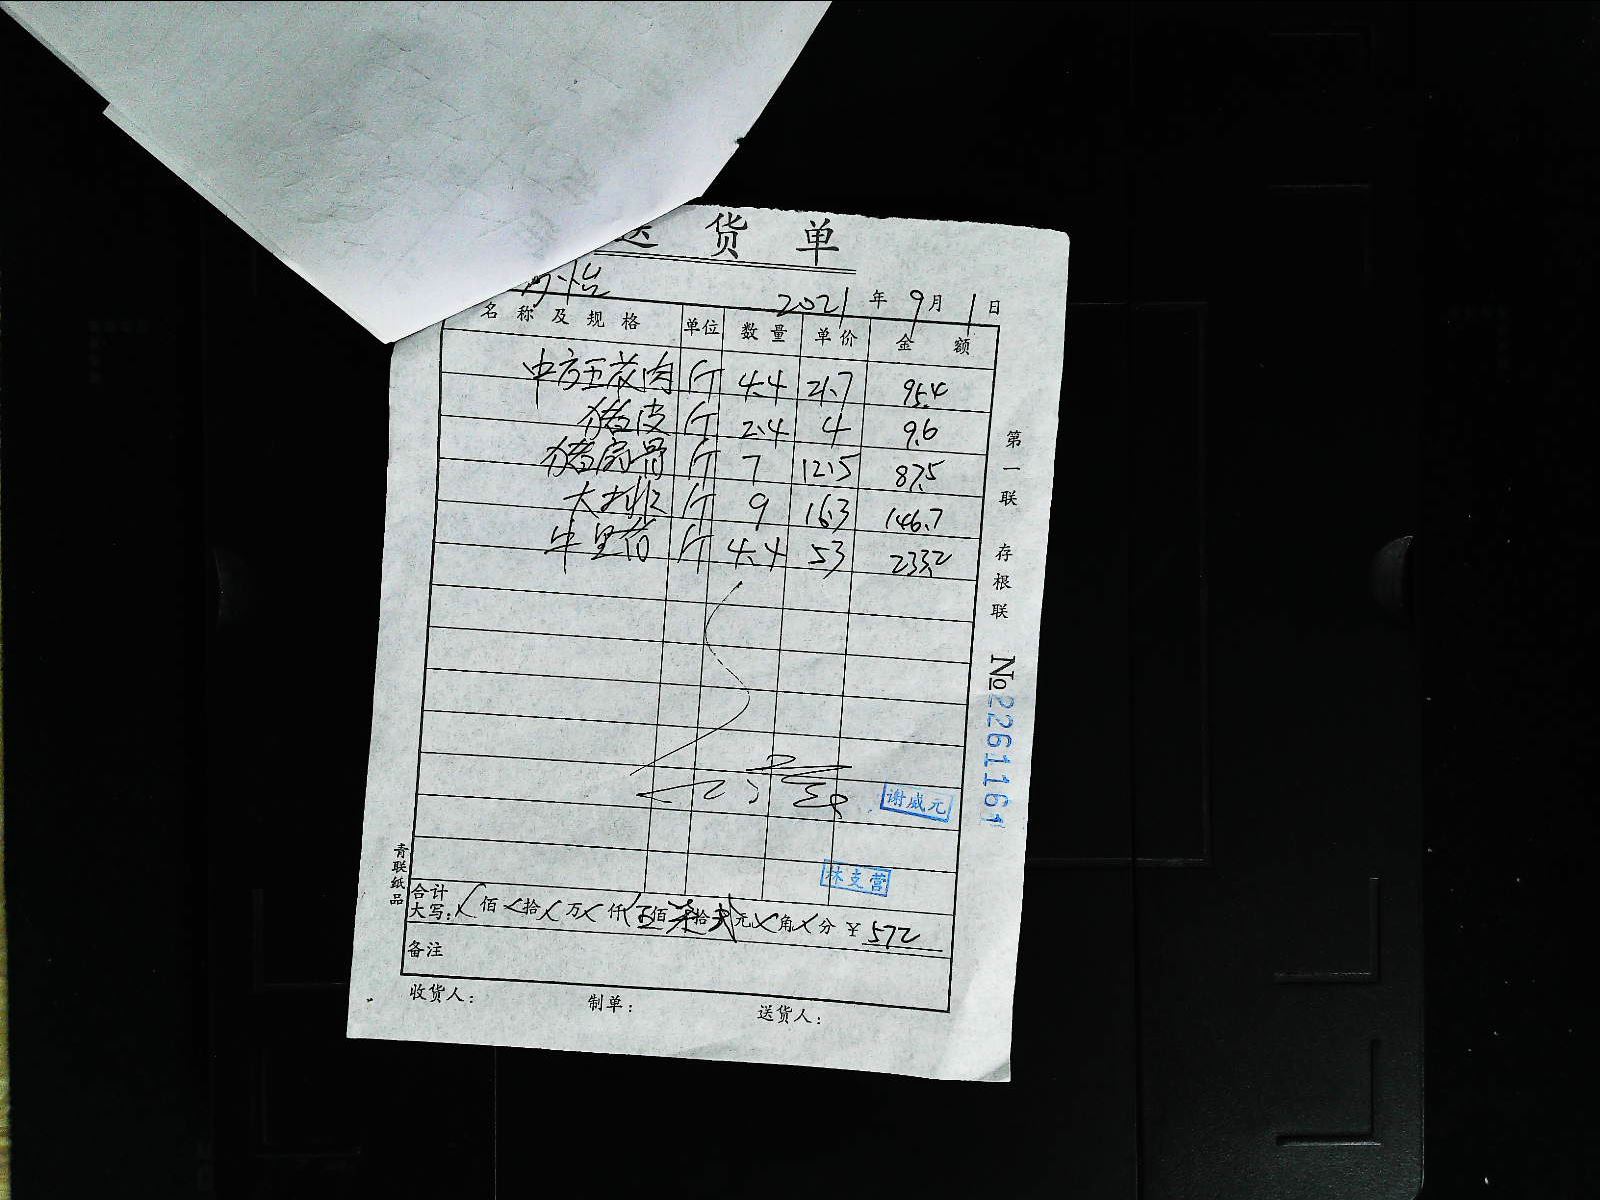 送 货 单
怡
2021 年 9 月 1 日
名 称 及 规 格 单位 数 量 单 价 金 额
中方五花肉 斤 4.4 21.7 95.4
猪皮 斤 2.4 4 9.6
猪扇骨 斤 7 12.5 87.5
大排 斤 9 16.3 146.7
牛里脊 斤 4.4 53 233.2
谢威元
林支营
合计
大写: 佰 拾 万 仟 伍佰 柒拾 贰元 角 分 ¥ 572
备注
收货人: 制单: 送货人:
第一联 存根联 No 2261161
青联纸品